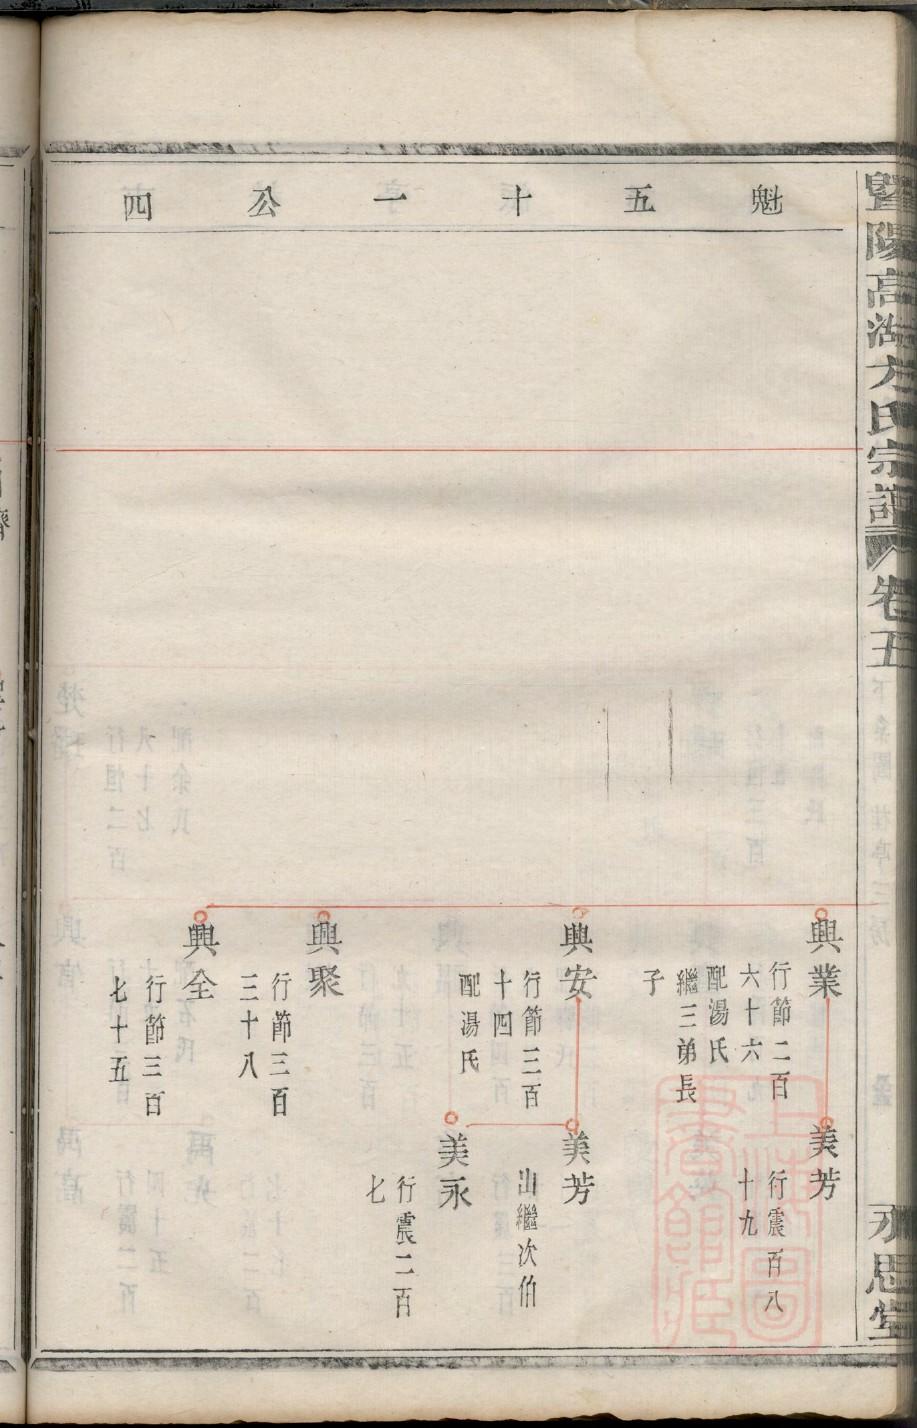 暨陽高湖方氏宗譜
卷五
永思堂
魁五十一公四
興業
行節二百
六十六
配湯氏
繼三弟長
子
美芳
行震百八
十九
興安
行節三百
十四
配湯氏
美芳
出繼次伯
美永
行震二百
七
興聚
行節三百
三十八
興全
行節三百
七十五